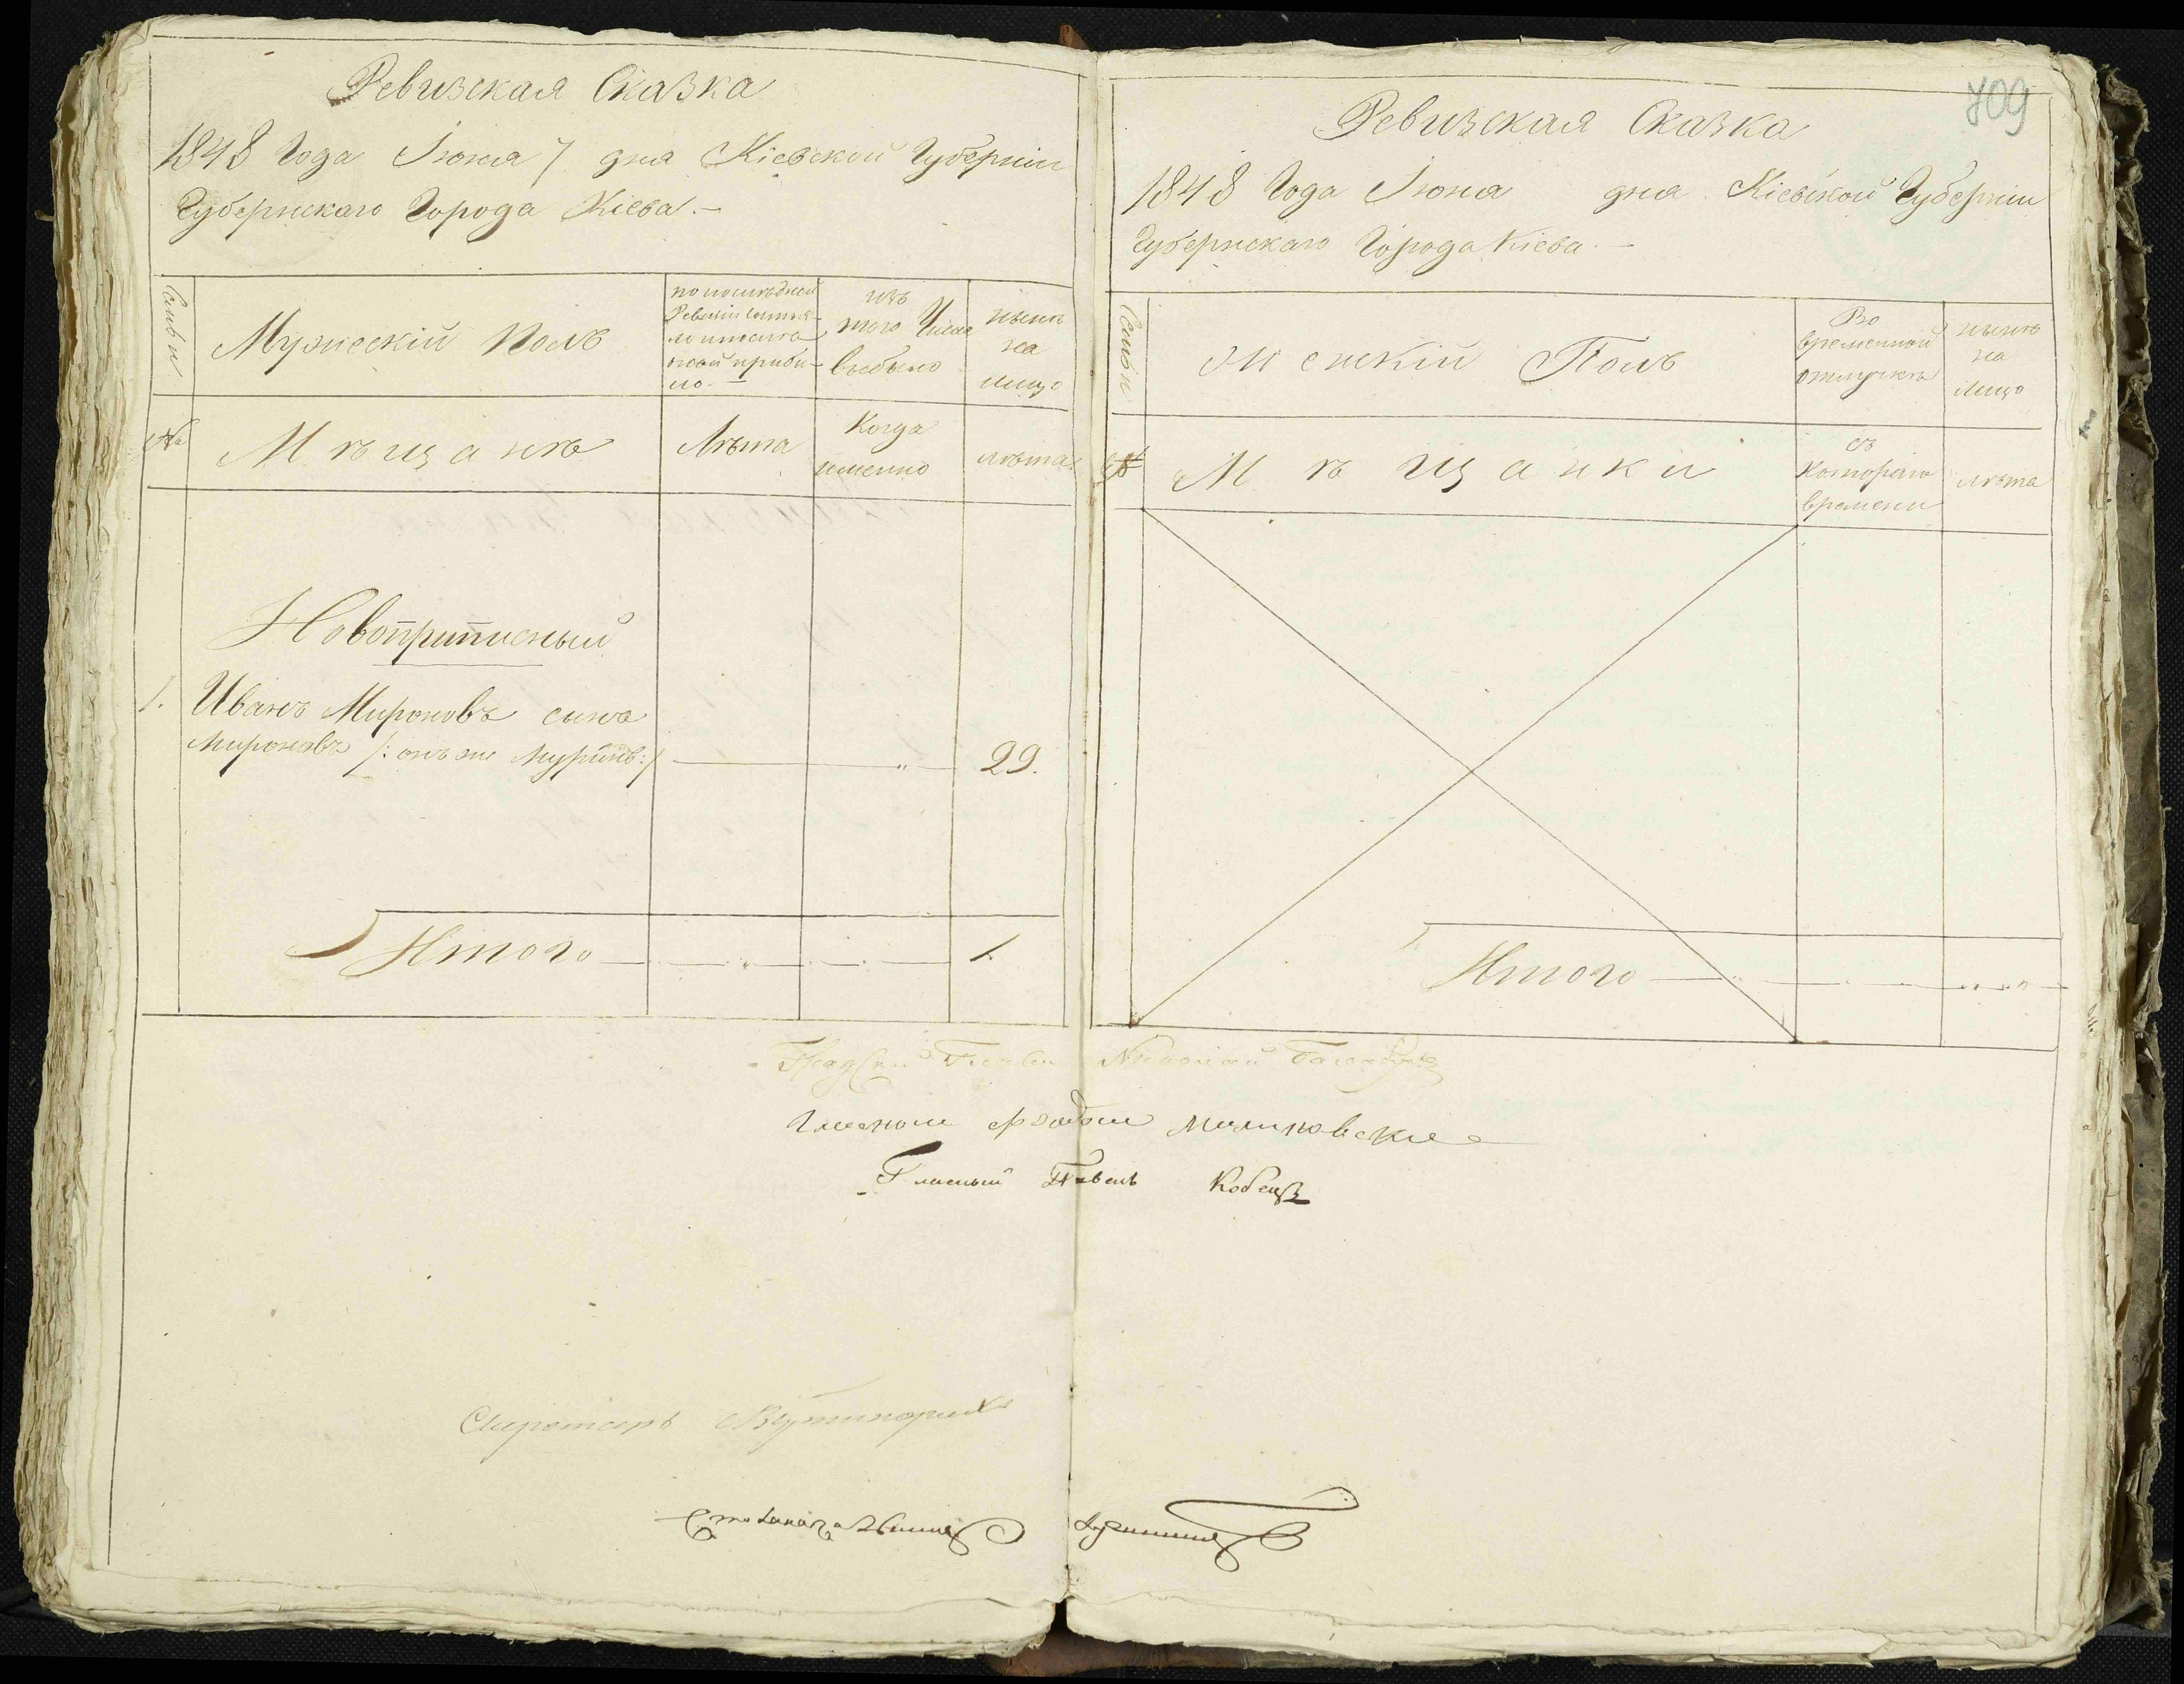 Ревизская Сказка
1848 Года Июня 7 дня Кіевской Губерніи
Губернскаго Города Кіева.—
Семьи
Мужескій Полъ
по последней
Ревизіи состоя-
ло и после
оной прибы-
ло.—
изъ
того Числа
выбыло
нынѣ
на
лицо
№
Мѣщанѣ
Лѣта
Когда
именно
лѣта
Новоприписный
1. Иванъ Мироновъ сынъ
Мироновъ /: онъ же :/ — " — 29.
Итого — " — 1.
709
Ревизская Сказка
1848 Года Июня дня Кіевской Губерніи
Губернскаго Города Кіева.—
Семьи
Женскій Полъ
Во
временной
отлучкѣ
нынѣ
на
лицо
№
Мѣщанки
съ
котораго
времени
лѣта
Итого — " — " —
Николай
Гласный Малиновскій
Гласный Павелъ Кобецъ
Секретарь